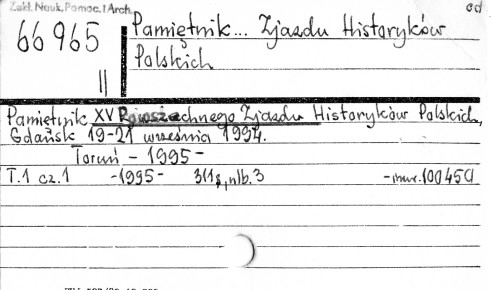 Zakł. Nauk. Pomoc. i Arch.
cd
66965
II
Pamiętnik... Zjazdu Historyków
Polskich
Pamiętnik XV Powszechnego Zjazdu Historyków Polskich,
Gdańsk 19-21 września 1994.
Toruń - 1995 -
T.1 cz.1 -1995- 311s, nlb.3 -inw.100459